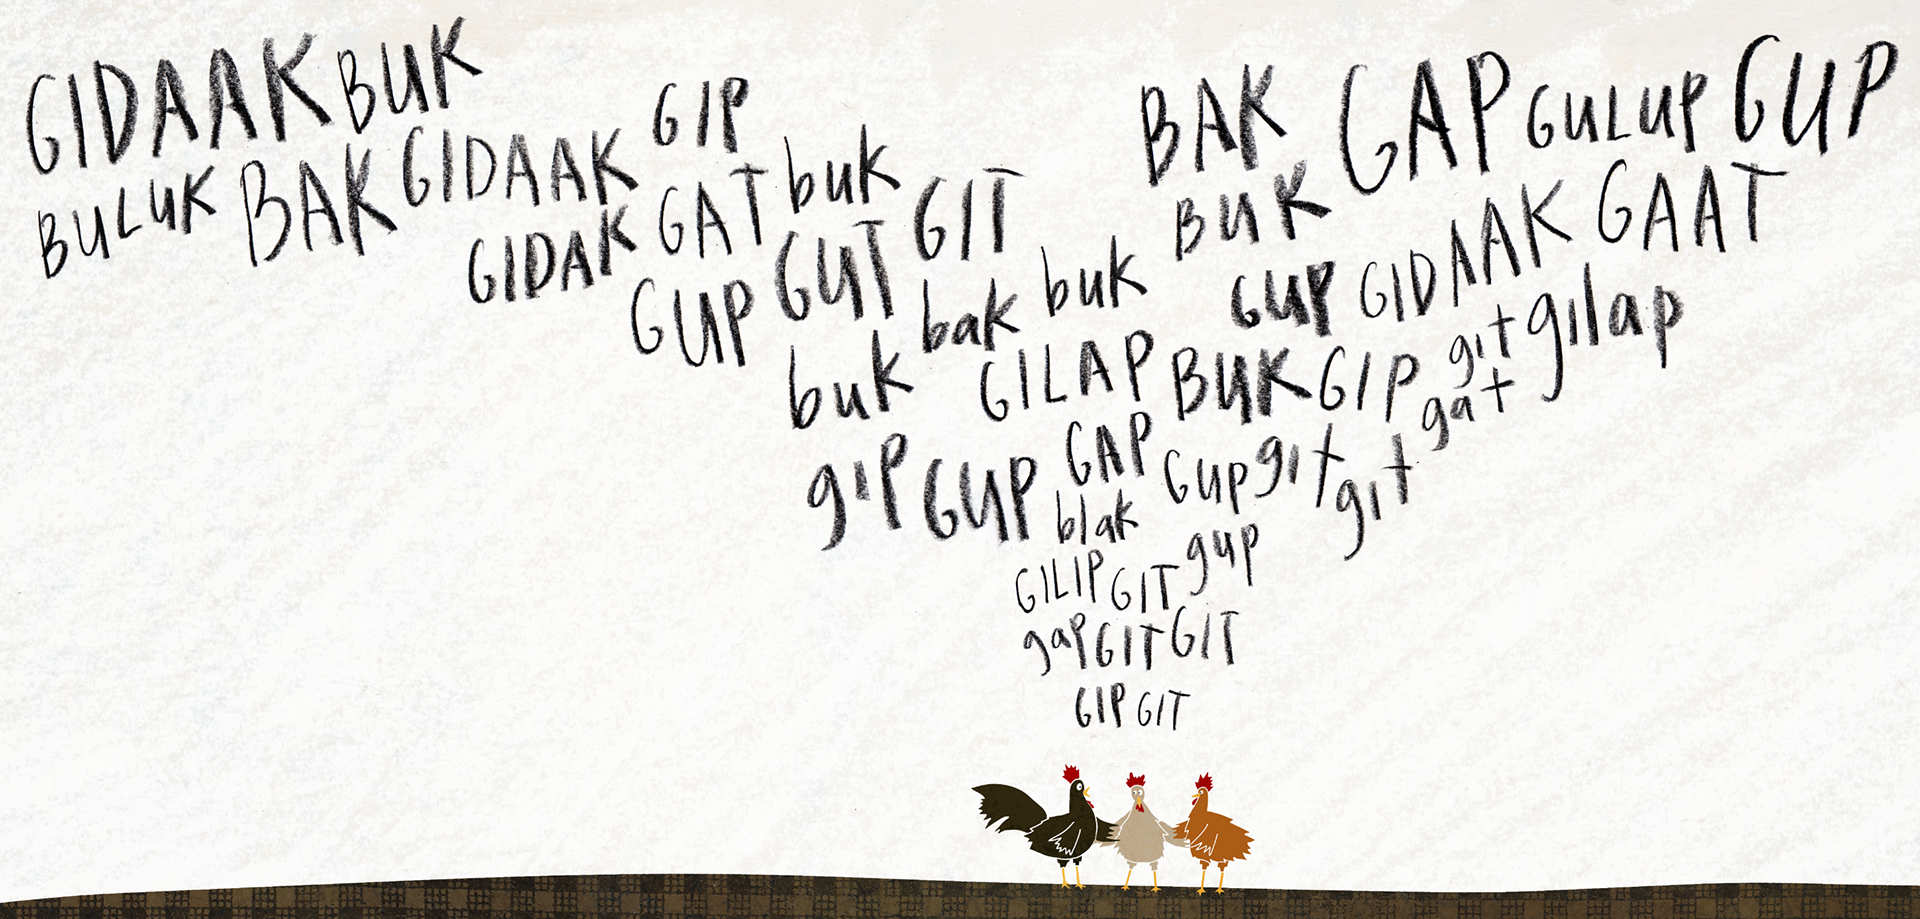 GIDAAK BUK
BULUK BAK GIDAAK GIP
GIDAK GAT buk
GUP GUT GIT
buk bak buk
BAK GAP GULUP GUP
BUK GIDAAK GAAT
GUP git gilap
GILAP BUK GIP gat
gIP GUP GAP GUP git git
blak
GILIP GIT gup
gap GIT GIT
GIP GIT